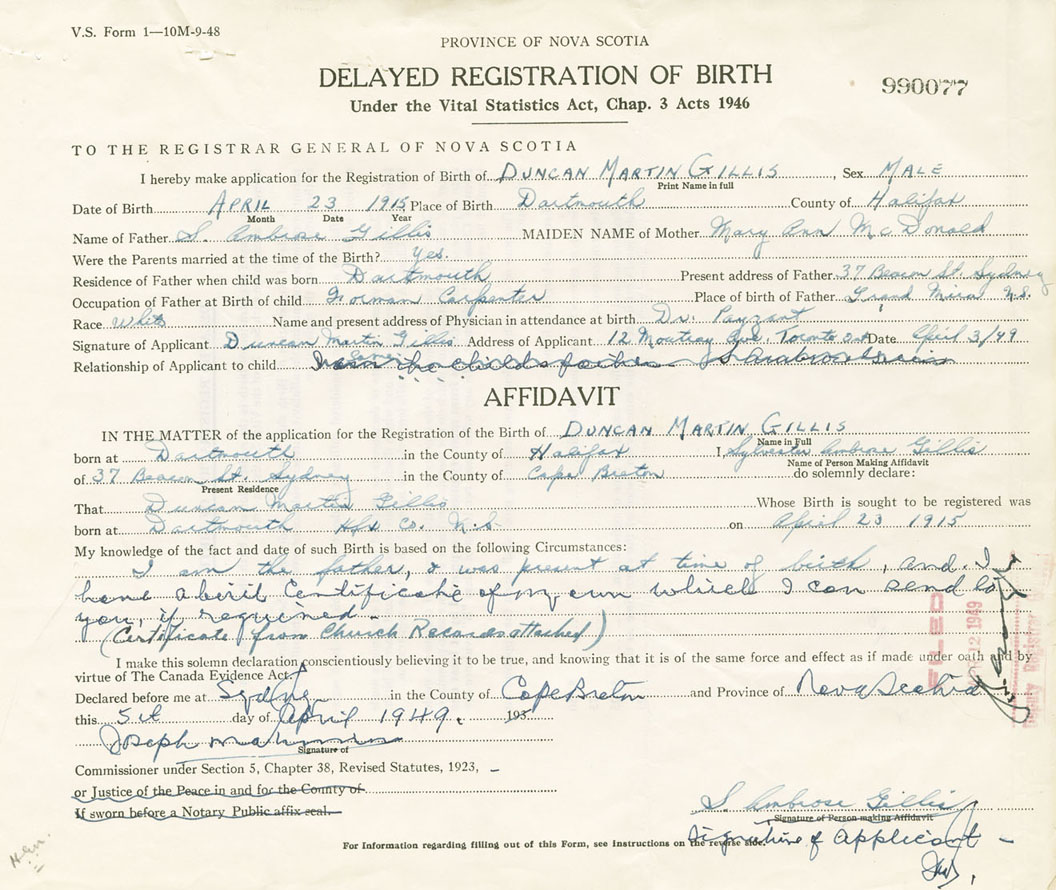 V.S. Form 1—10M-9-48
PROVINCE OF NOVA SCOTIA
DELAYED REGISTRATION OF BIRTH
990077
Under the Vital Statistics Act, Chap. 3 Acts 1946
TO THE REGISTRAR GENERAL OF NOVA SCOTIA
I hereby make application for the Registration of Birth of DUNCAN MARTIN GILLIS, Sex MALE
Print Name in full
Date of Birth APRIL 23 1915 Place of Birth Dartmouth County of Halifax
Month Date Year
Name of Father S. Ambrose Gillis MAIDEN NAME of Mother Mary Ann McDonald
Were the Parents married at the time of the Birth? Yes.
Residence of Father when child was born Dartmouth Present address of Father 37 Beacon St. Sydney
Occupation of Father at Birth of child Foreman Carpenter Place of birth of Father Grand Mira N.S.
Race White Name and present address of Physician in attendance at birth Dr. Payzant
Signature of Applicant Duncan Martin Gillis Address of Applicant 12 Ave. Toronto Ont Date April 3/49
Relationship of Applicant to child
AFFIDAVIT
IN THE MATTER of the application for the Registration of the Birth of DUNCAN MARTIN GILLIS
Name in Full
born at Dartmouth in the County of Halifax I, Sylvester Ambrose Gillis
Name of Person Making Affidavit
of 37 Beacon St. Sydney in the County of Cape Breton do solemnly declare:
Present Residence
That Duncan Martin Gillis Whose Birth is sought to be registered was
born at Dartmouth Hfx Co. N.S. on April 23 1915
My knowledge of the fact and date of such Birth is based on the following Circumstances:
I am the father, & was present at time of birth, and I
have a birth Certificate of my own which I can send to
you, if required.
(Certificate from Church Records attached)
I make this solemn declaration conscientiously believing it to be true, and knowing that it is of the same force and effect as if made under oath and by
virtue of The Canada Evidence Act.
Declared before me at Sydney in the County of Cape Breton and Province of Nova Scotia
this 5th day of April 1949. 195
Joseph
Signature of
Commissioner under Section 5, Chapter 38, Revised Statutes, 1923, —
or Justice of the Peace in and for the County of
If sworn before a Notary Public affix seal.
S. Ambrose Gillis
Signature of Person making Affidavit
For Information regarding filling out of this Form, see Instructions on the reverse side.
Signature of Applicant —
FILED
12 1949
Deputy Registrar